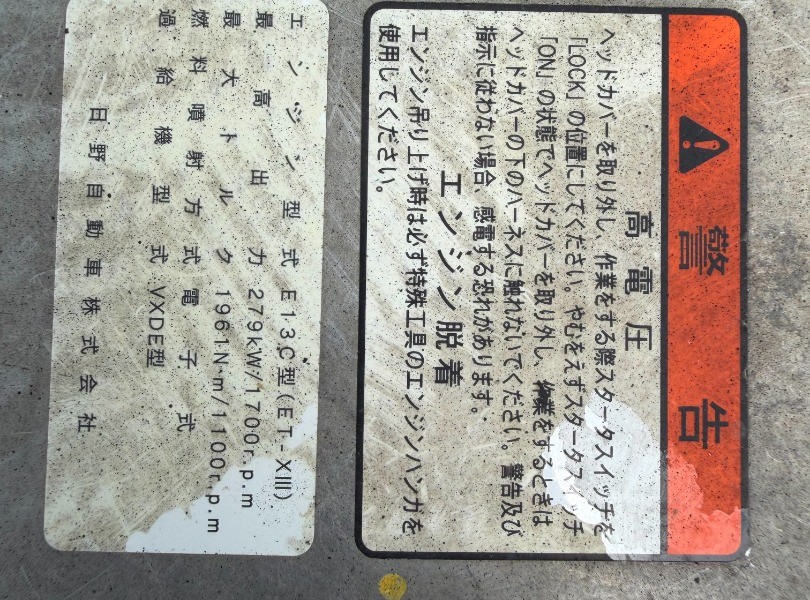 警告
高電圧
ヘッドカバーを取り外し、作業をする際スタータスイッチを
「LOCK」の位置にしてください。やむをえずスタータスイッチ
「ON」の状態でヘッドカバーを取り外し、作業をするときは
ヘッドカバーの下のハーネスに触れないでください。警告及び
指示に従わない場合、感電する恐れがあります。
エンジン脱着
エンジン吊り上げ時は必ず特殊工具のエンジンハンガを
使用してください。
エンジン型式 E13C型(ET-XIII)
最高出力 279kW/1700r.p.m
最大トルク 1961N·m/1100r.p.m
燃料噴射方式 電子式
過給機型式 VXDE型
日野自動車株式会社